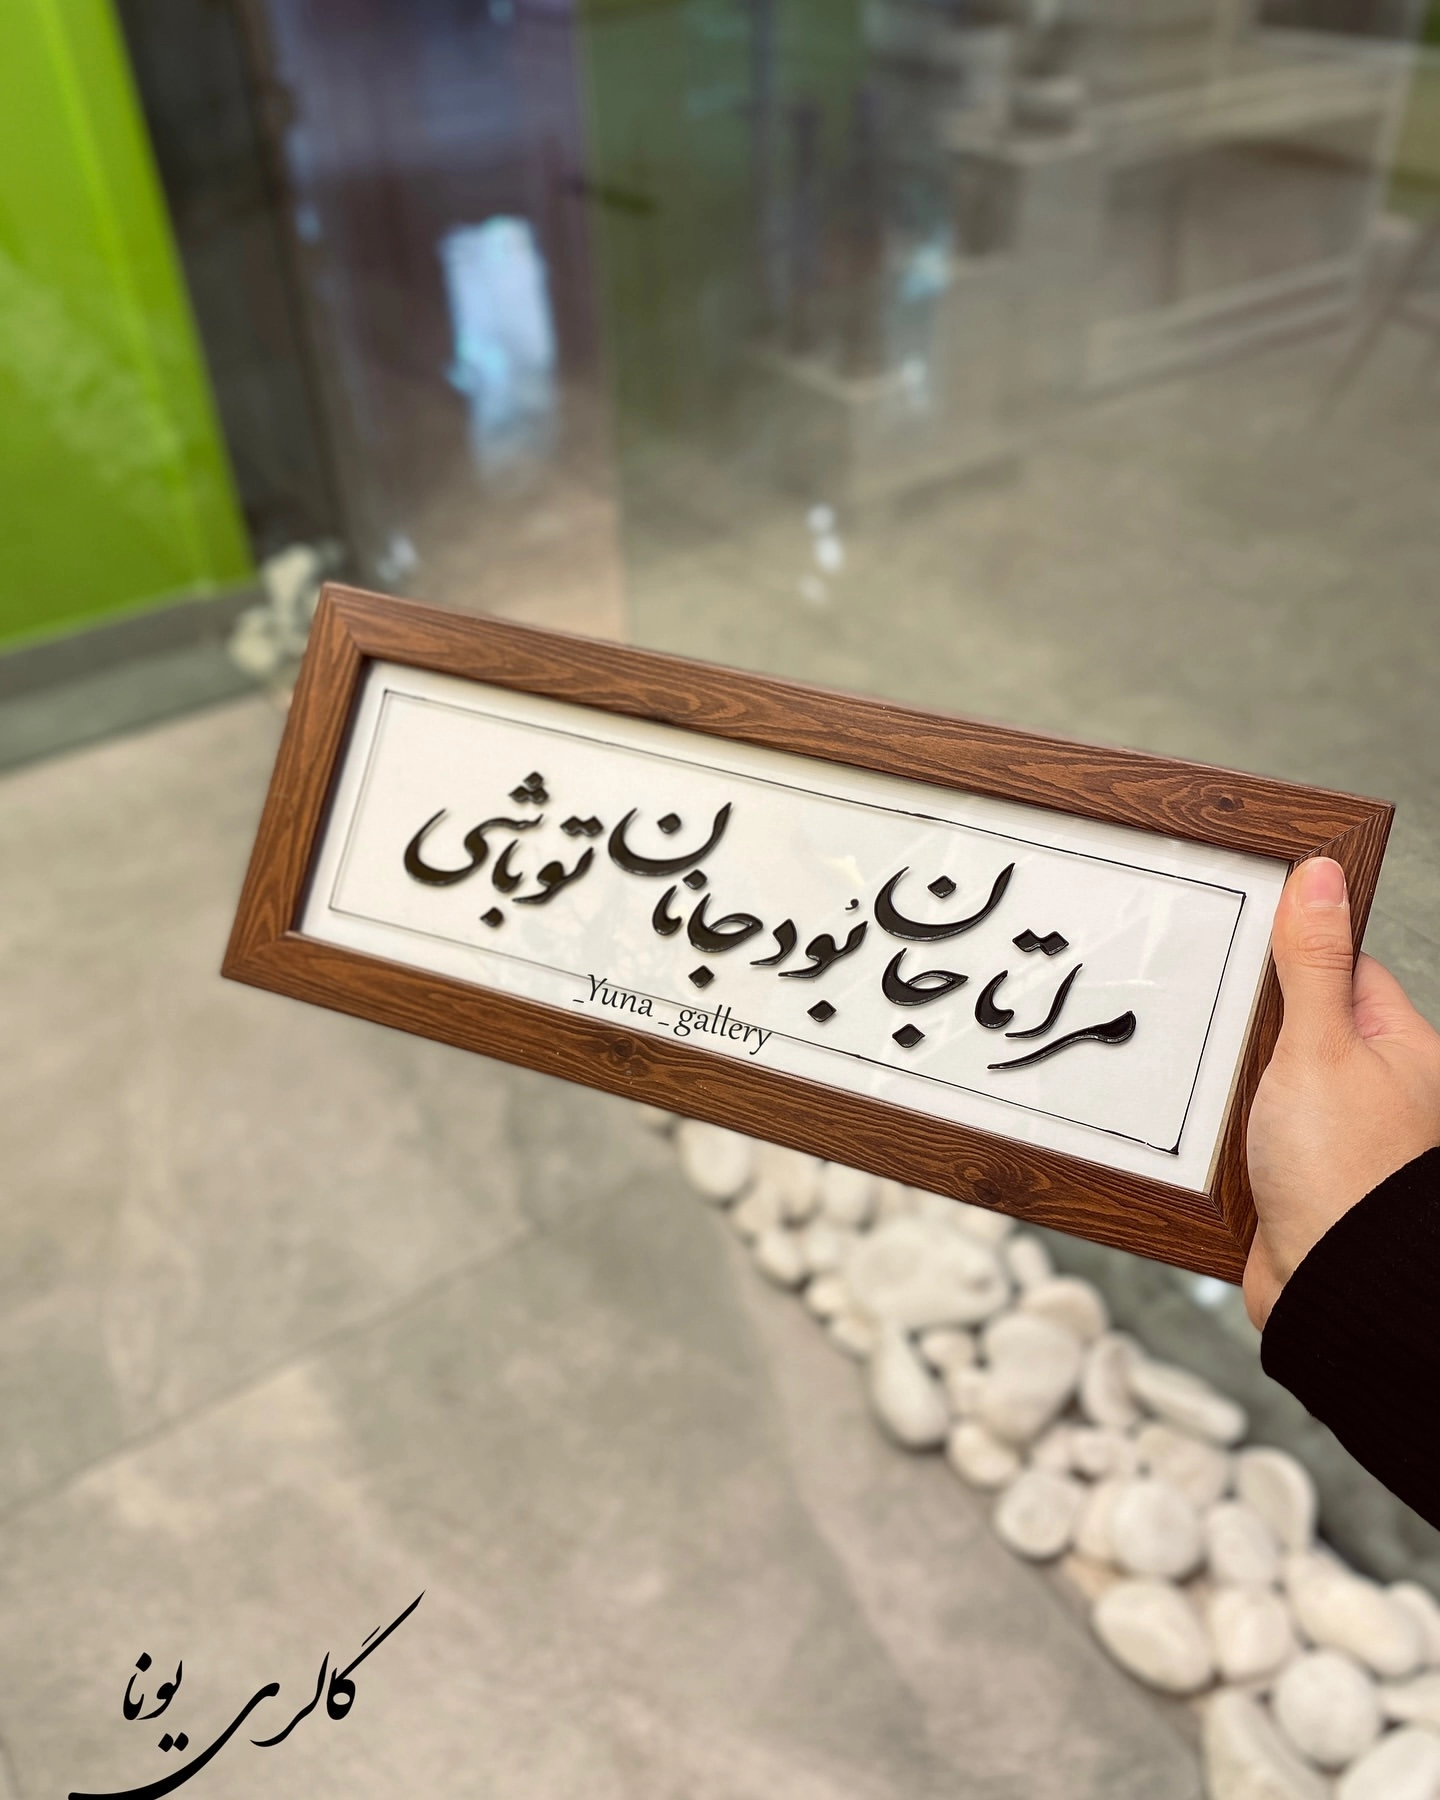 مرا تا جان بُود جانان تو باشی
_Yuna _ gallery
گالری یونا